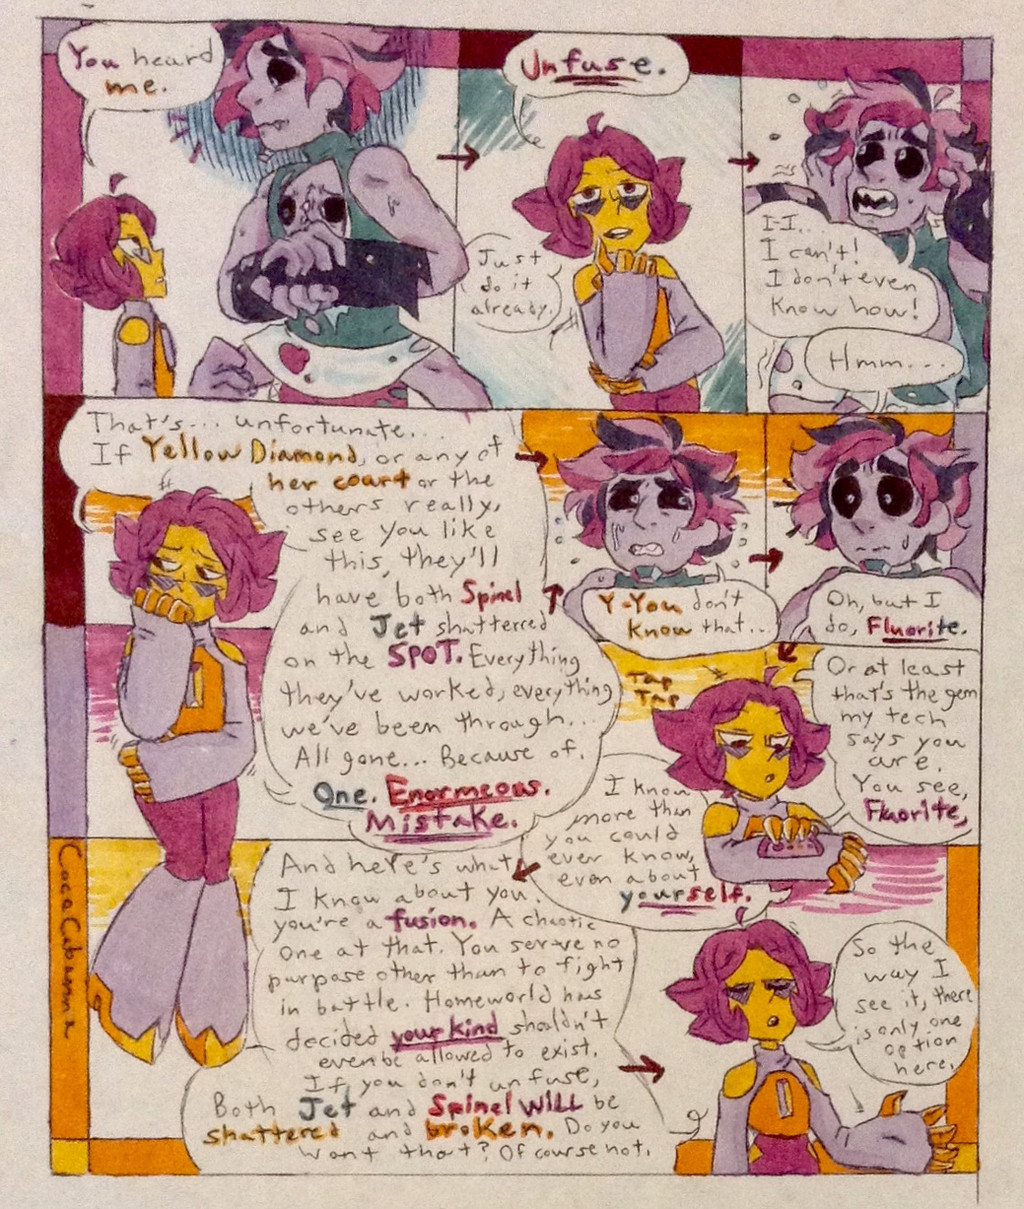 You heard
me.
Unfuse.
Just
do it
already.
I-I..
I can't!
I don't even
know how!
Hmm...
That's... unfortunate...
If Yellow Diamond, or any of
her court or the
others really,
see you like
this, they'll
have both Spinel
and Jet shattered
on the SPOT. Everything
they've worked, everything
we've been through...
All gone... Because of.
One. Enormeous.
Mistake.
Y-You don't
know that...
Oh, but I
do, Fluorite.
Or at least
that's the gem
my tech
says you
are.
You see,
Fluorite,
Tap
Tap
I know
more than
you could
ever know,
even about
yourself.
And here's what
I know about you.
you're a fusion. A chaotic
one at that. You serve no
purpose other than to fight
in battle. Homeworld has
decided your kind shouldn't
even be allowed to exist.
If you don't unfuse,
Both Jet and Spinel WILL be
shattered and broken. Do you
want that? Of course not.
So the
way I
see it, there
is only one
option
here.
CocoCabanna